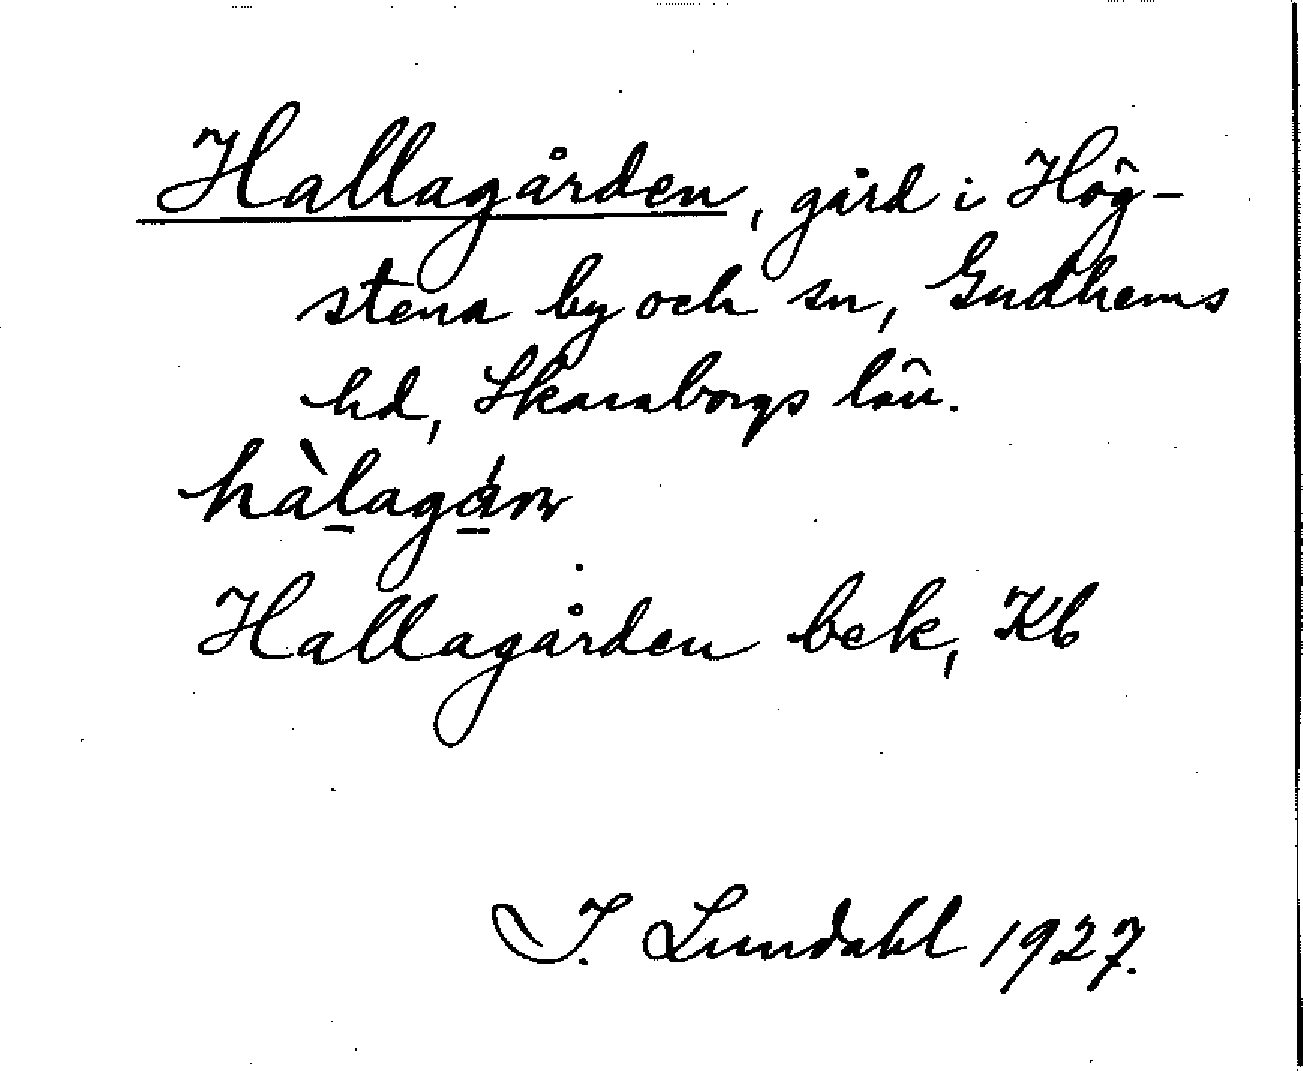 Hallagården, gård i Hög-
stena by och sn, Gudhems
hd, Skaraborgs län.
Hallagården bek, Kb
I. Lundahl 1927.